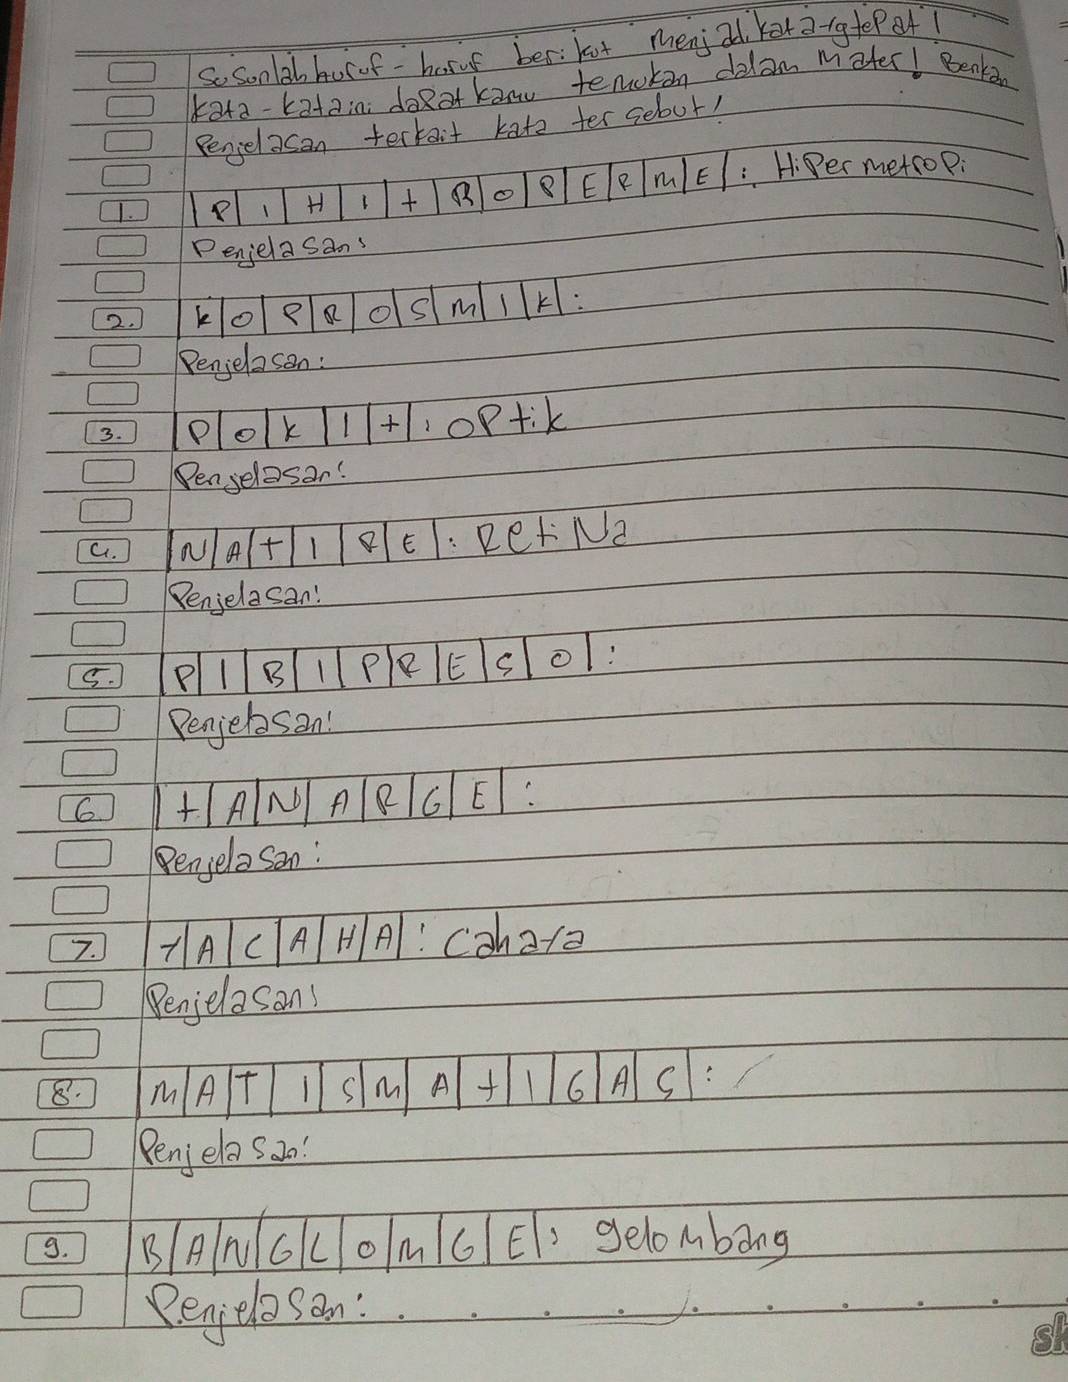 Susunlah huruf-huruf berikut menjadi kata yg tepat!
kata-kata ini dapat kamu temukan dalam materi! Berikan
Penjelasan terkait kata tersebut!
1. P I H I T R O P E R M E : Hipermetropi
Penjelasan:
2. K O P R O S M I K :
Penjelasan:
3. P O K I T : OPtik
Penjelasan:
4. N A T I R E : RetiNa
Penjelasan:
5. P I B I P R E S O :
Penjelasan:
6. T A N A R G E :
Penjelasan:
7. Y A C A H A : Cahaya
Penjelasan:
8. M A T I S M A T I G A S :
Penjelasan:
9. B A N G L O M G E : gelombang
Penjelasan: . . . . . . . . .